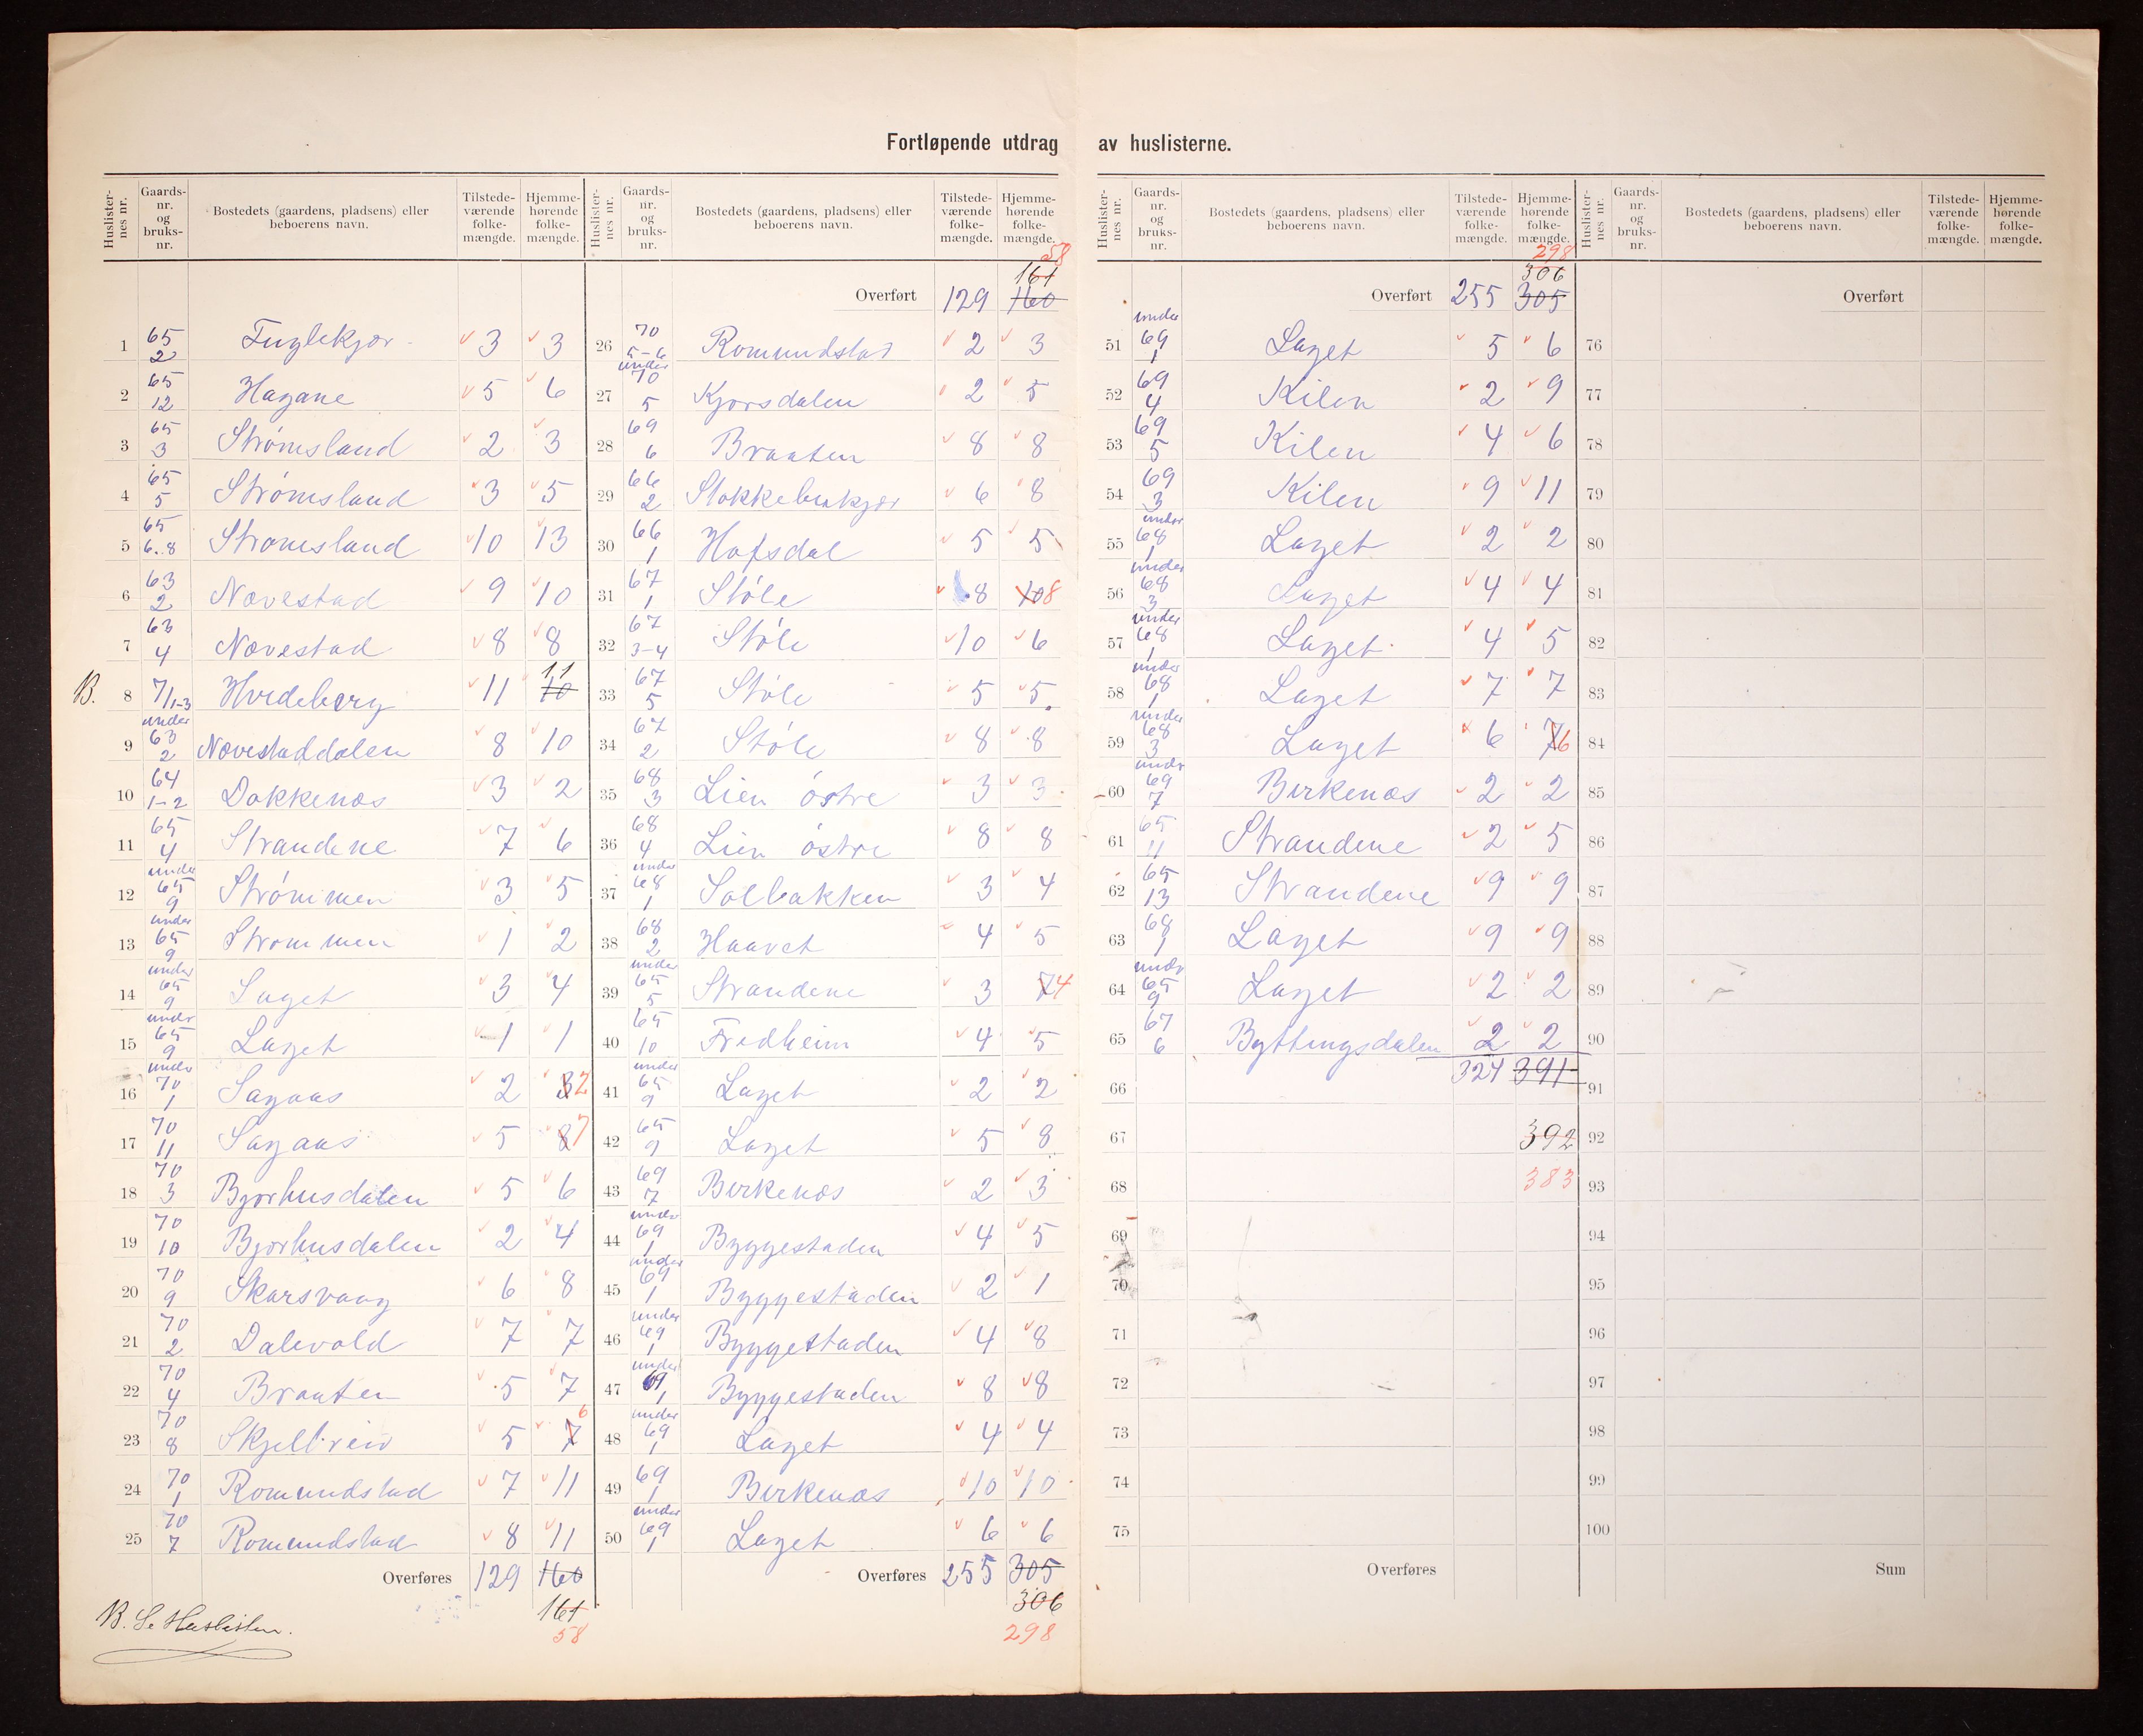 Fortløpende utdrag av huslisterne.
Huslisternes nr. Gaards-nr. og bruks-nr. Bostedets (gaardens, pladsens) eller beboerens navn. Tilstede-værende folke-mængde. Hjemme-hørende folke-mængde.
1 65 2 Fuglekjær 3 3
2 65 12 Hagane 5 6
3 65 3 Strømsland 2 3
4 65 5 Strømsland 3 5
5 65 6.8 Strømsland 10 13
6 63 2 Nævestad 9 10
7 63 4 Nævestad 8 8
B. 8 7/1-3 Hvideberg 11 10 11
9 under 63 2 Nævestaddalen 8 10
10 64 1-2 Dokkenæs 3 2
11 65 4 Strandene 7 6
12 under 65 9 Strømmen 3 5
13 under 65 9 Strømmen 1 2
14 under 65 9 Laget 3 4
15 under 65 9 Laget 1 1
16 under 70 1 Sagaas 2 3 2
17 70 11 Sagaas 5 8 7
18 70 3 Bjorhusdalen 5 6
19 70 10 Bjorhusdalen 2 4
20 70 9 Skarsvaag 6 8
21 70 2 Dalevold 7 7
22 70 4 Braaten 5 7
23 70 8 Skjelbreid 5 7 6
24 70 1 Romundstad 7 11
25 70 7 Romundstad 8 11
Overføres 129 160
161
58
B. Se Huslisten.
Huslisternes nr. Gaards-nr. og bruks-nr. Bostedets (gaardens, pladsens) eller beboerens navn. Tilstede-værende folke-mængde. Hjemme-hørende folke-mængde.
58
161
Overført 129 160
26 70 5-6 Romundstad 2 3
27 under 70 5 Kjorsdalen 2 5
28 69 6 Braaten 8 8
29 66 2 Stokkebukjær 6 8
30 66 1 Hafsdal 5 5
31 67 1 Støle 8 10 8
32 67 3-4 Støle 10 6
33 67 5 Støle 5 5
34 67 2 Støle 8 8
35 68 3 Lien østre 3 3
36 68 4 Lien østre 8 8
37 under 68 1 Solbakken 3 4
38 68 2 Haavet 4 5
39 under 65 5 Strandene 3 7 4
40 65 10 Fredheim 4 5
41 under 65 9 Laget 2 2
42 65 9 Laget 5 8
43 69 7 Birkenæs 2 3
44 under 69 1 Byggestaden 4 5
45 under 69 1 Byggestaden 2 1
46 under 69 1 Byggestaden 4 8
47 under 69 1 Byggestaden 8 8
48 under 69 1 Laget 4 4
49 69 1 Birkenæs 10 10
50 under 69 1 Laget 6 6
Overføres 255 305
306
298
Huslisternes nr. Gaards-nr. og bruks-nr. Bostedets (gaardens, pladsens) eller beboerens navn. Tilstede-værende folke-mængde. Hjemme-hørende folke-mængde.
298
306
Overført 255 305
51 under 69 1 Laget 5 6
52 69 4 Kilen 2 9
53 69 5 Kilen 4 6
54 69 3 Kilen 9 11
55 under 68 1 Laget 2 2
56 under 68 3 Laget 4 4
57 under 68 1 Laget 4 5
58 under 68 1 Laget 7 7
59 under 68 3 Laget 6 7 6
60 under 69 7 Birkenæs 2 2
61 65 11 Strandene 2 5
62 65 13 Strandene 9 9
63 68 1 Laget 9 9
64 under 65 9 Laget 2 2
65 67 6 Byttingsdalen 2 2
66 324 391
67 392
68 383
69
70
71
72
73
74
75
Overføres
Huslisternes nr. Gaards-nr. og bruks-nr. Bostedets (gaardens, pladsens) eller beboerens navn. Tilstede-værende folke-mængde. Hjemme-hørende folke-mængde.
Overført
76
77
78
79
80
81
82
83
84
85
86
87
88
89
90
91
92
93
94
95
96
97
98
99
100
Sum